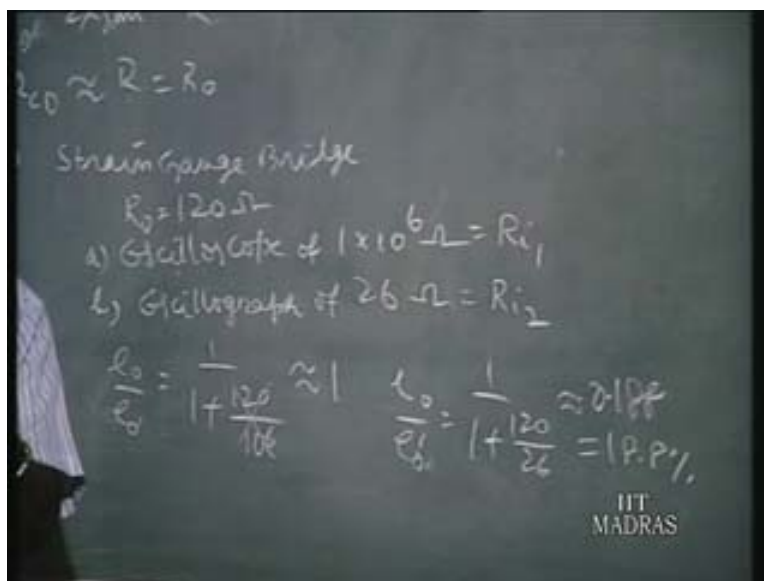 R_CD ≈ R = R_0
Strain Gauge Bridge
R_0 = 120 Ω
a) Oscilloscope of 1 x 10^6 Ω = R_i1
b) Oscillograph of 26 Ω = R_i2
e_0/e_0' = 1/(1 + 120/10^6) ≈ 1 e_0/e_0' = 1/(1 + 120/26) ≈ 0.188
= 18.8%
IIT
MADRAS